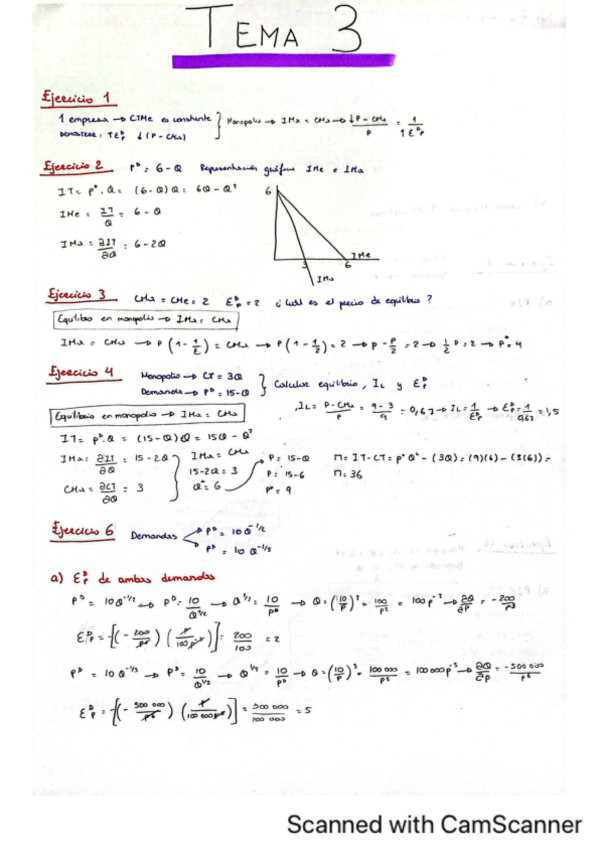 TEMA 3
Ejercicio 1
1 empresa → CTMe es constante
Demostrar: ↑Eᴰₚ ↓(P - CMa)
Monopolio → IMa = CMa → ↓P - CMa / P = 1 / ↑Eᴰₚ
Ejercicio 2 Pᴰ = 6 - Q Representación gráfica IMe e IMa
IT = Pᴰ · Q = (6 - Q) Q = 6Q - Q²
IMe = IT / Q = 6 - Q
IMa = ∂IT / ∂Q = 6 - 2Q
6
3
6
IMe
IMa
Ejercicio 3 CMa = CMe = 2 Eᴰₚ = 2 ¿Cuál es el precio de equilibrio?
Equilibrio en monopolio → IMa = CMa
IMa = CMa → P (1 - 1/E) = CMa → P (1 - 1/2) = 2 → P - P/2 = 2 → 1/2 P = 2 → P* = 4
Ejercicio 4 Monopolio → CT = 3Q
Demanda → Pᴰ = 15 - Q
Calcular equilibrio, IL y Eᴰₚ
Equilibrio en monopolio → IMa = CMa
IL = P - CMa / P = 9 - 3 / 9 = 0,67 → IL = 1 / Eᴰₚ → Eᴰₚ = 1 / 0,67 = 1,5
IT = Pᴰ · Q = (15 - Q) Q = 15Q - Q²
IMa = ∂IT / ∂Q = 15 - 2Q
CMa = ∂CT / ∂Q = 3
IMa = CMa
15 - 2Q = 3
Q* = 6
P = 15 - Q
P = 15 - 6
P* = 9
Π = IT - CT = P* Q* - (3Q) = (9)(6) - (3(6)) =
Π = 36
Ejercicio 6 Demandas
Pᴰ = 10 Q^-1/2
Pᴰ = 10 Q^-1/5
a) Eᴰₚ de ambas demandas
Pᴰ = 10Q^-1/2 → Pᴰ = 10 / Q^1/2 → Q^1/2 = 10 / Pᴰ → Q = (10/P)² = 100 / P² = 100P^-2 → ∂Q / ∂P = -200 / P³
Eᴰₚ = -[(-200 / P³) (P / 100P^-2)] = 200 / 100 = 2
Pᴰ = 10 Q^-1/5 → Pᴰ = 10 / Q^1/5 → Q^1/5 = 10 / Pᴰ → Q = (10/P)⁵ = 100 000 / P⁵ = 100 000 P^-5 → ∂Q / ∂P = -500 000 / P⁶
Eᴰₚ = -[(-500 000 / P⁶) (P / 100 000 P^-5)] = 500 000 / 100 000 = 5
Scanned with CamScanner